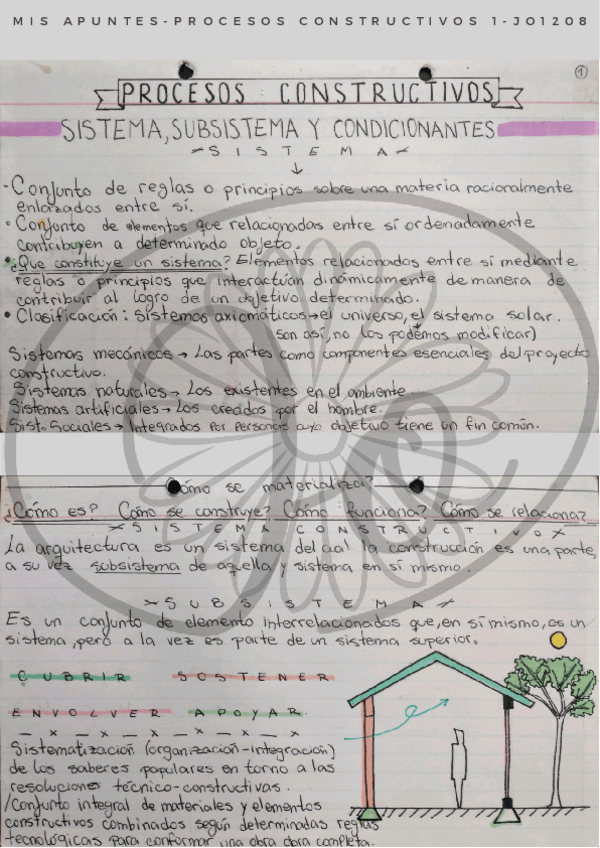 MIS APUNTES-PROCESOS CONSTRUCTIVOS 1-JO1208
1
PROCESOS CONSTRUCTIVOS
SISTEMA, SUBSISTEMA Y CONDICIONANTES
SISTEMA
- Conjunto de reglas o principios sobre una materia racionalmente
enlazados entre sí.
• Conjunto de elementos que relacionadas entre sí ordenadamente
contribuyen a determinado objeto.
• ¿Que constituye un sistema? Elementos relacionados entre sí mediante
reglas o principios que interactúan dinámicamente de manera de
contribuir al logro de un objetivo determinado.
• Clasificación: Sistemas axiomáticos → el universo, el sistema solar.
son así, no los podemos modificar)
Sistemas mecánicos → Las partes como componentes esenciales del proyecto
constructivo.
Sistemas naturales → Los existentes en el ambiente
Sistemas artificiales → Los creados por el hombre.
Sist. Sociales → Integrados por personas cuyo objetivo tiene un fin común.
Cómo se materializa?
¿Cómo es? Cómo se construye? Cómo funciona? Cómo se relaciona?
SISTEMA CONSTRUCTIVO
La arquitectura es un sistema del cual la construcción es una parte,
a su vez subsistema de aquella y sistema en sí mismo.
SUBSISTEMA
Es un conjunto de elemento interrelacionados que, en sí mismo, es un
sistema, pero a la vez es parte de un sistema superior.
CUBRIR SOSTENER
ENVOLVER APOYAR
Sistematización (organización-integración)
de los saberes populares en torno a las
resoluciones técnico-constructivas.
/Conjunto integral de materiales y elementos
constructivos combinados según determinadas reglas
tecnológicas para conformar una obra obra completa.